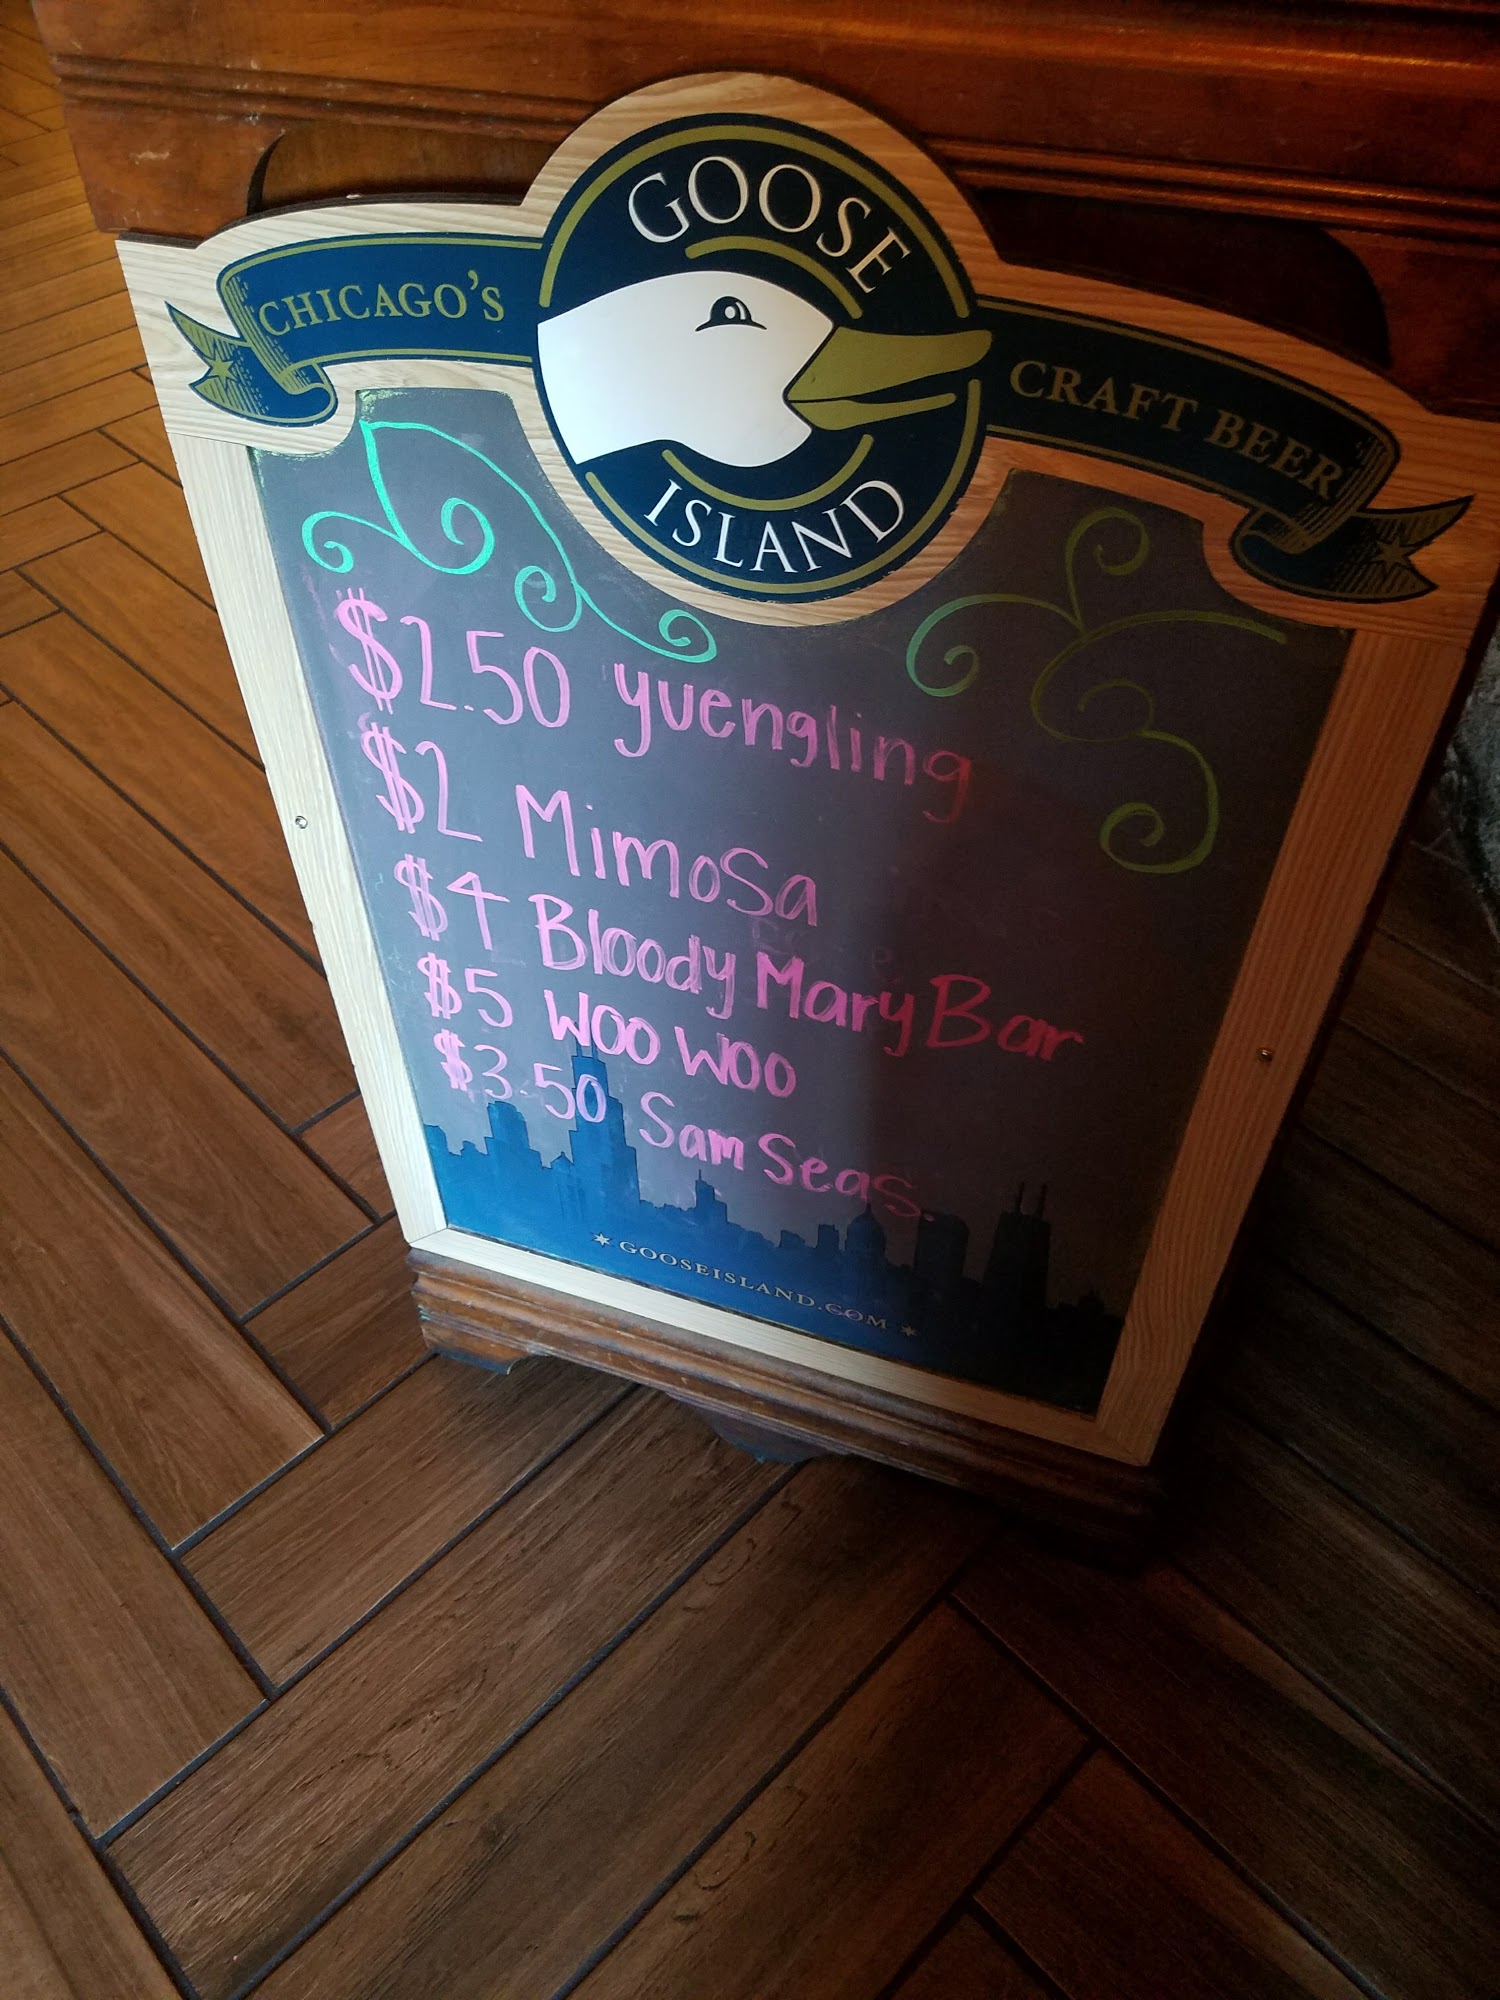 GOOSE
CHICAGO'S
CRAFT BEER
ISLAND
$2.50 yuengling
$2 Mimosa
$4 Bloody Mary Bar
$5 Woo Woo
$3.50 Sam Seas.
* GOOSEISLAND.COM *